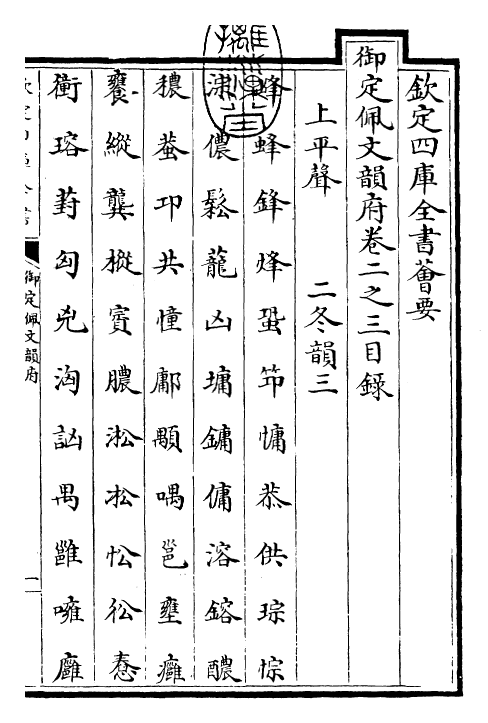 欽定四庫全書薈要
御定佩文韻府卷二之三目錄
上平聲　二冬韻三
峰蜂鋒烽蛩笻慵恭供琮悰
淙儂鬆蘢凶墉鏞傭溶鎔醲
穠蛬邛共憧鄘顒喁邕壅癰
饔縱龔樅賨膿淞忪彸惷
衝瑢葑匈兇洶訩禺雝噰廱
御定佩文韻府
一